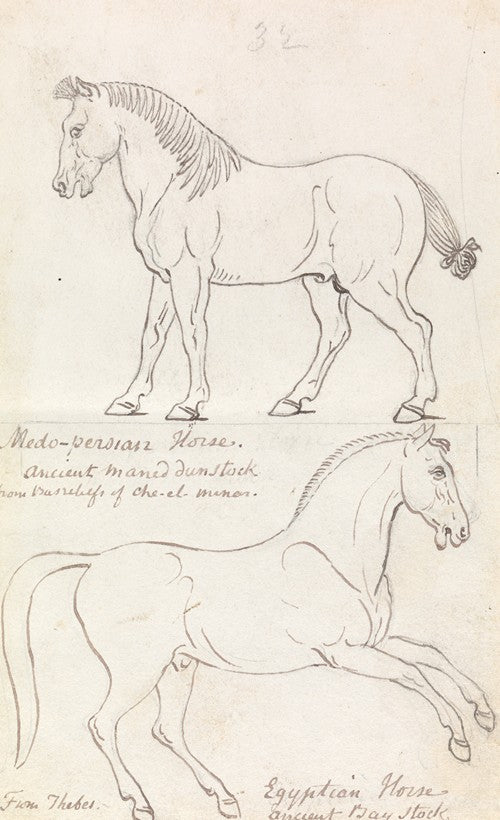 32
Medo-persian Horse.
ancient maned dun stock
from Basreliefs of che-el-minar.
From Thebes.
Egyptian Horse
ancient Bay stock.